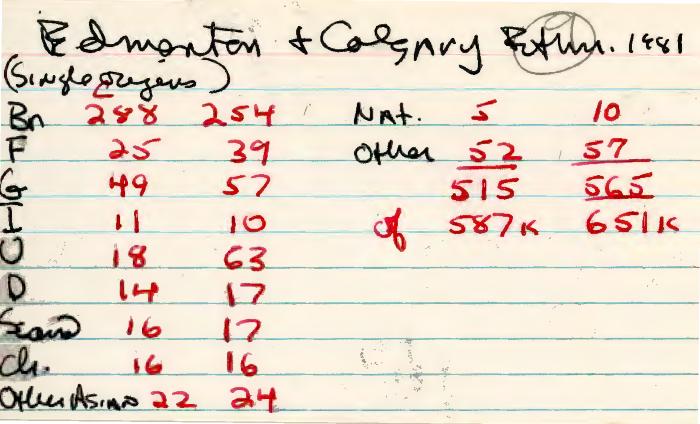 Edmonton + Calgary Ethn. 1981
(Single origins)
Br 288 254
F 25 39
G 49 57
I 11 10
U 18 63
D 14 17
Scand 16 17
Ch. 16 16
Other Asian 22 24
Nat. 5 10
Other 52 57
515 565
of 587K 651K